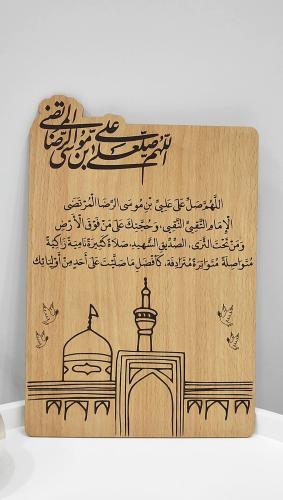 اللهم صل علی علی بن موسی الرضا المرتضی
اَللّهُمَّ صَلِّ عَلى عَلِيِّ بْنِ مُوسَى الرِّضَا الْمُرْتَضَى
الْإِمَامِ التَّقِيِّ النَّقِيِّ، وَحُجَّتِكَ عَلَى مَنْ فَوْقَ الْأَرْضِ
وَمَنْ تَحْتَ الثَّرَى، الصِّدِّيقِ الشَّهِيدِ، صَلَاةً كَثِيرَةً نَامِيَةً زَاكِيَةً
مُتَوَاصِلَةً مُتَوَاتِرَةً مُتَرَادِفَةً، كَأَفْضَلِ مَا صَلَّيْتَ عَلَى أَحَدٍ مِنْ أَوْلِيَائِكَ